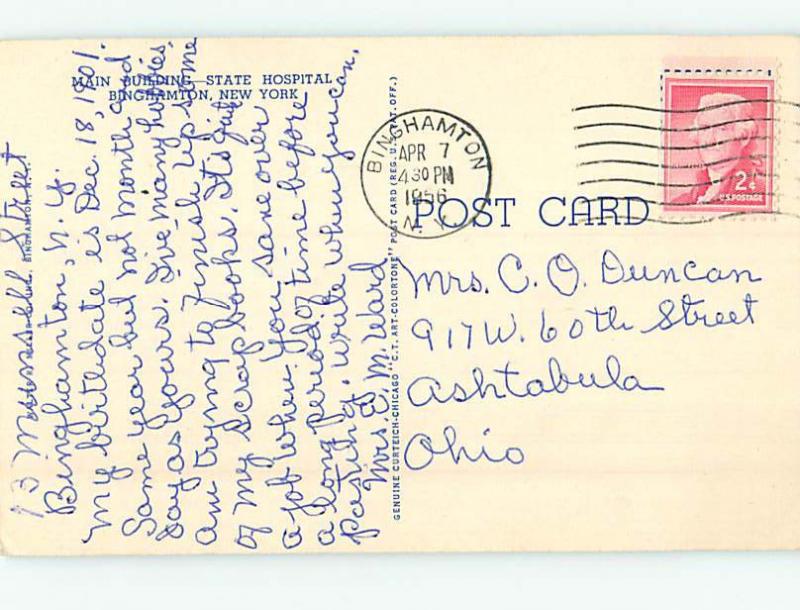 MAIN BUILDING—STATE HOSPITAL
BINGHAMTON, NEW YORK
13 Street
Binghamton, N.Y.
My birthdate is Dec. 18, 1901.
Same year but not month and
day as yours. I've many hobbies.
Am trying to finish up some
of my scrap books. It's quite
a job when you save over
a long period of time before
pasting. Write when you can.
Mrs. C. M. Ward
GENUINE CURTEICH-CHICAGO "C.T. ART-COLORTONE" POST CARD (REG. U.S. PAT. OFF.)
BINGHAMTON
APR 7
4 30 PM
1956
N.Y.
2¢
U.S. POSTAGE
POST CARD
Mrs. C. O. Duncan
917 W. 60th Street
Ashtabula
Ohio